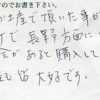 のでお書き下さい。
お土産で頂いた事が
で 長野方面に
会があると購入して
も皆 大好です。